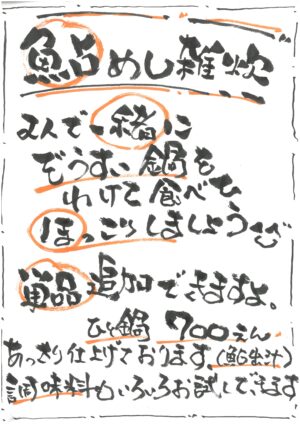 鮎めし雑炊
みんで一緒に
ぞうすい鍋を
わけて食べて
ほっこりしましょう
単品追加できますよ。
ひと鍋 700えん
あっさり仕上げております。(鮎出汁)
調味料もいろいろお試しできます